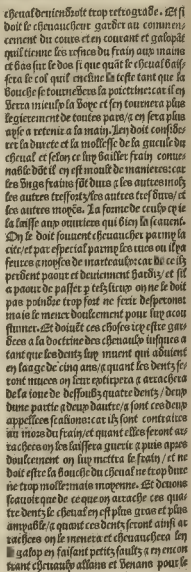 cheual deuiendroit trop retrograde. Et si
doit le cheuaucheur garder au commen-
cement du cours et en courant et galopāt
quil tienne les resnes du frain aux mains
et bas sur le dos si que quāt le cheual bais-
sera le col quil encline la teste tant que la
bouche se tournera vers la poictrine: car il en
verra mieulx la voye et sen tournera plus
legierement de toutes pars/ & en sera plus
ayse a retenir a la main. Len doit conside-
rer la durete et la mollesse de la gueule du
cheual et selon ce luy bailler frain conue-
nable dōt il en est moult de manieres: car
les vngs frains sōt durs & les autres molz
les autres tresfortz/les autres tres durs / et
les autres moyēs. La forme de ceulx cy ie
la laisse aux ouuriers qui bien la scauent.
On le doit souuent cheuaucher parmy la
cite/ et par especial parmy les rues ou il y a
feures & noyse de marteaulx: car de ce ilz
perdent paour et deuiennent hardiz/ et sil
a paour de passer p telz lieux on ne le doit
pas poindre trop fort ne ferir desperonst
mais le mener doulcement pour luy acou
stumer. Et doiuēt ces choses icy estre gar-
dees a la doctrine des cheuaulx iusques a
tant que les dentz luy muent qui aduient
en laage de cinq ans/ & quant les dentz se-
ront muees on leur & arrachera
de la ioue de dessoubz quatre dentz / deux
dune partie & deux dautre/ & sont ces deux
appellees scalions: car ilz sont contraires
au mors du frain/ et quant elles seront ar-
rachees on les laissera guerir & puis apres
doulcement on luy mettra le frain / et ne
doit estre la bouche du cheual ne trop dure
ne trop molle mais moyenne. Et deuons
scauoir que de ce que on arrache ces qua-
tre dentz le cheual en est plus gras et plus
& quant ces dentz seront ainsi ar-
rachees on le menera et cheuauchera len
galop en faisant petitz saultz & en encon
trant cheuaulx allans et venans pour le